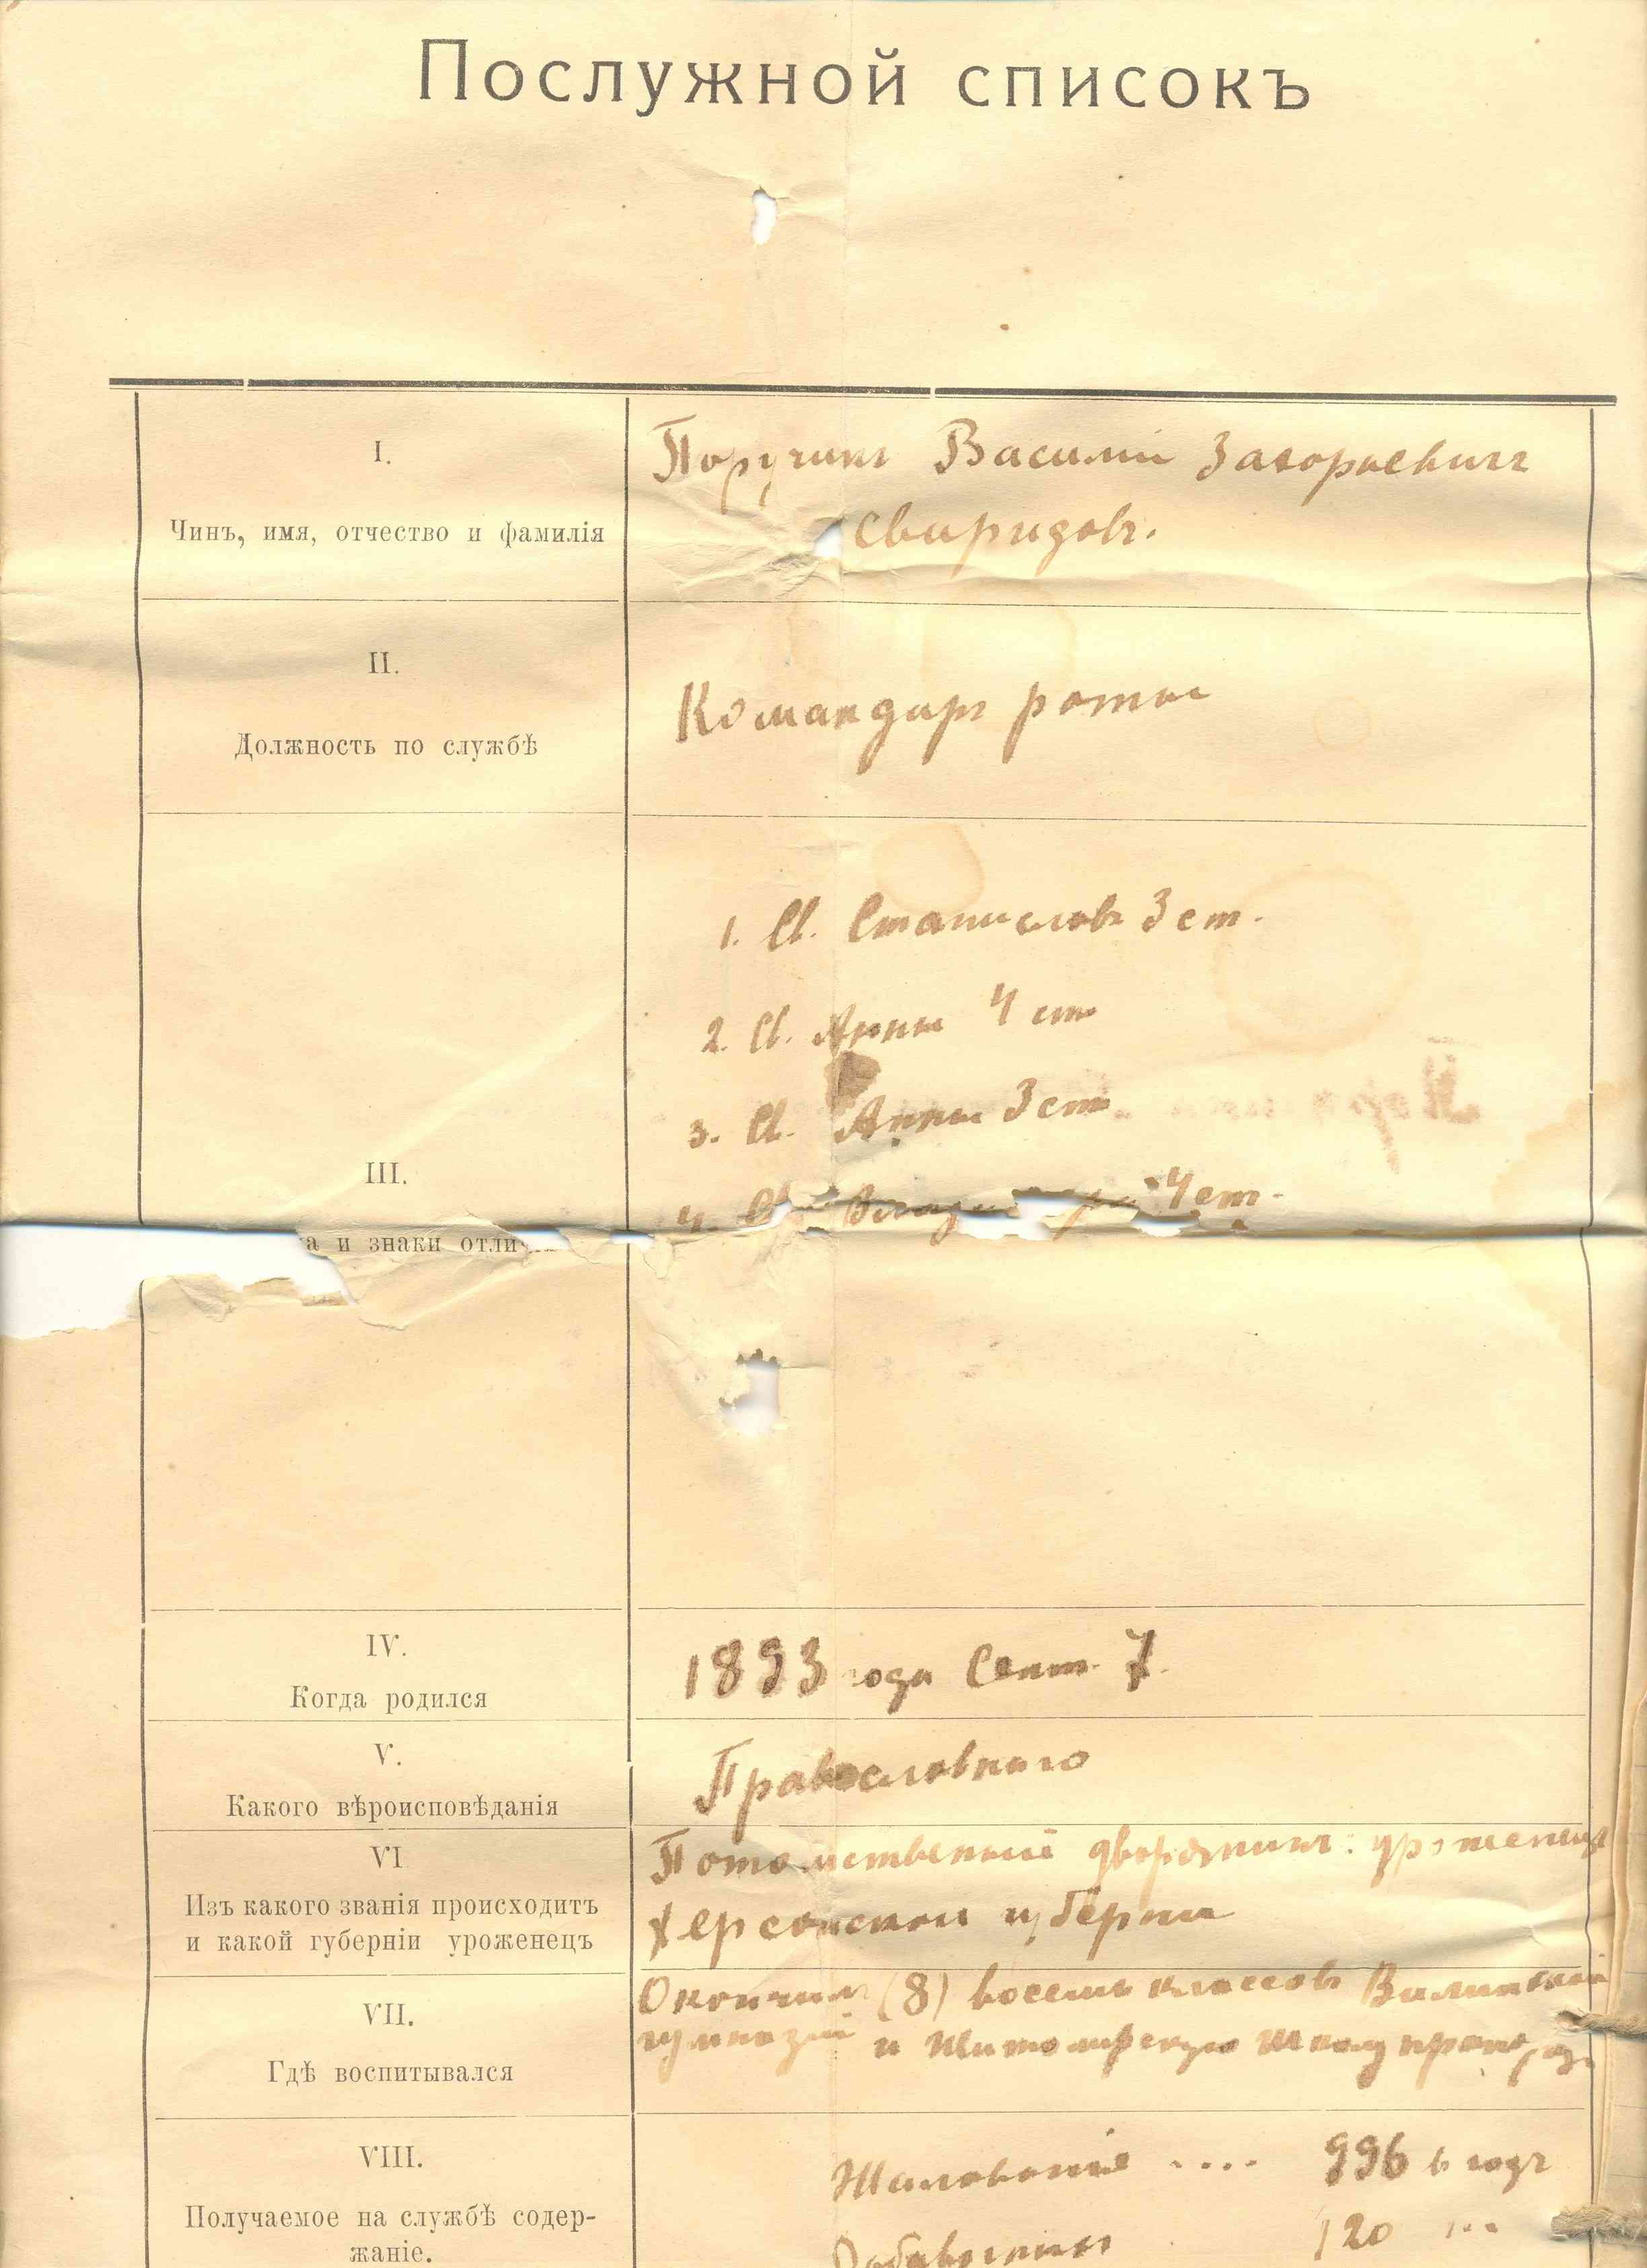 Послужной списокъ
I.
Чинъ, имя, отчество и фамилія
Поручикъ Василій Захорьевичъ
Свиридовъ.
II.
Должность по службѣ
Командиръ роты
III.
а и знаки отли
1. Св. Станиславъ 3 ст.
2. Св. Анны 4 ст
3. Св. Анны 3 ст
4. Св 4 ст.
IV.
Когда родился
1893 года Сент. 7.
V.
Какого вѣроисповѣданія
Православнаго
VI
Изъ какого званія происходитъ
и какой губерніи уроженецъ
Потомственный дворянинъ: уроженецъ
Херсонской губерни
VII.
Гдѣ воспитывался
Окончилъ (8) восемь классовъ
гимназіи и Житомирскую школу
VIII.
Получаемое на службѣ содер-
жаніе.
Жалованіе .... 996 в годъ
Добавочныхъ 120